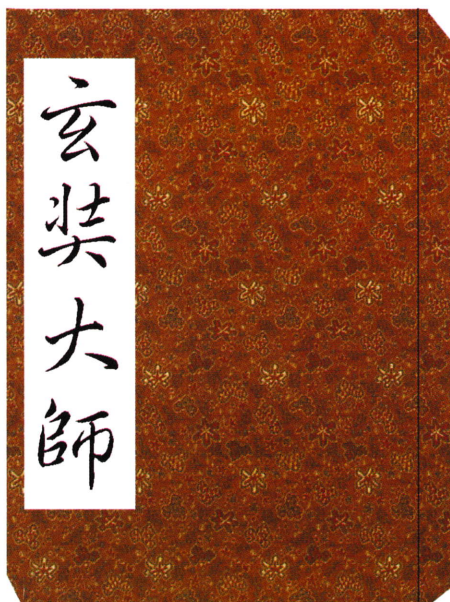 玄奘大師